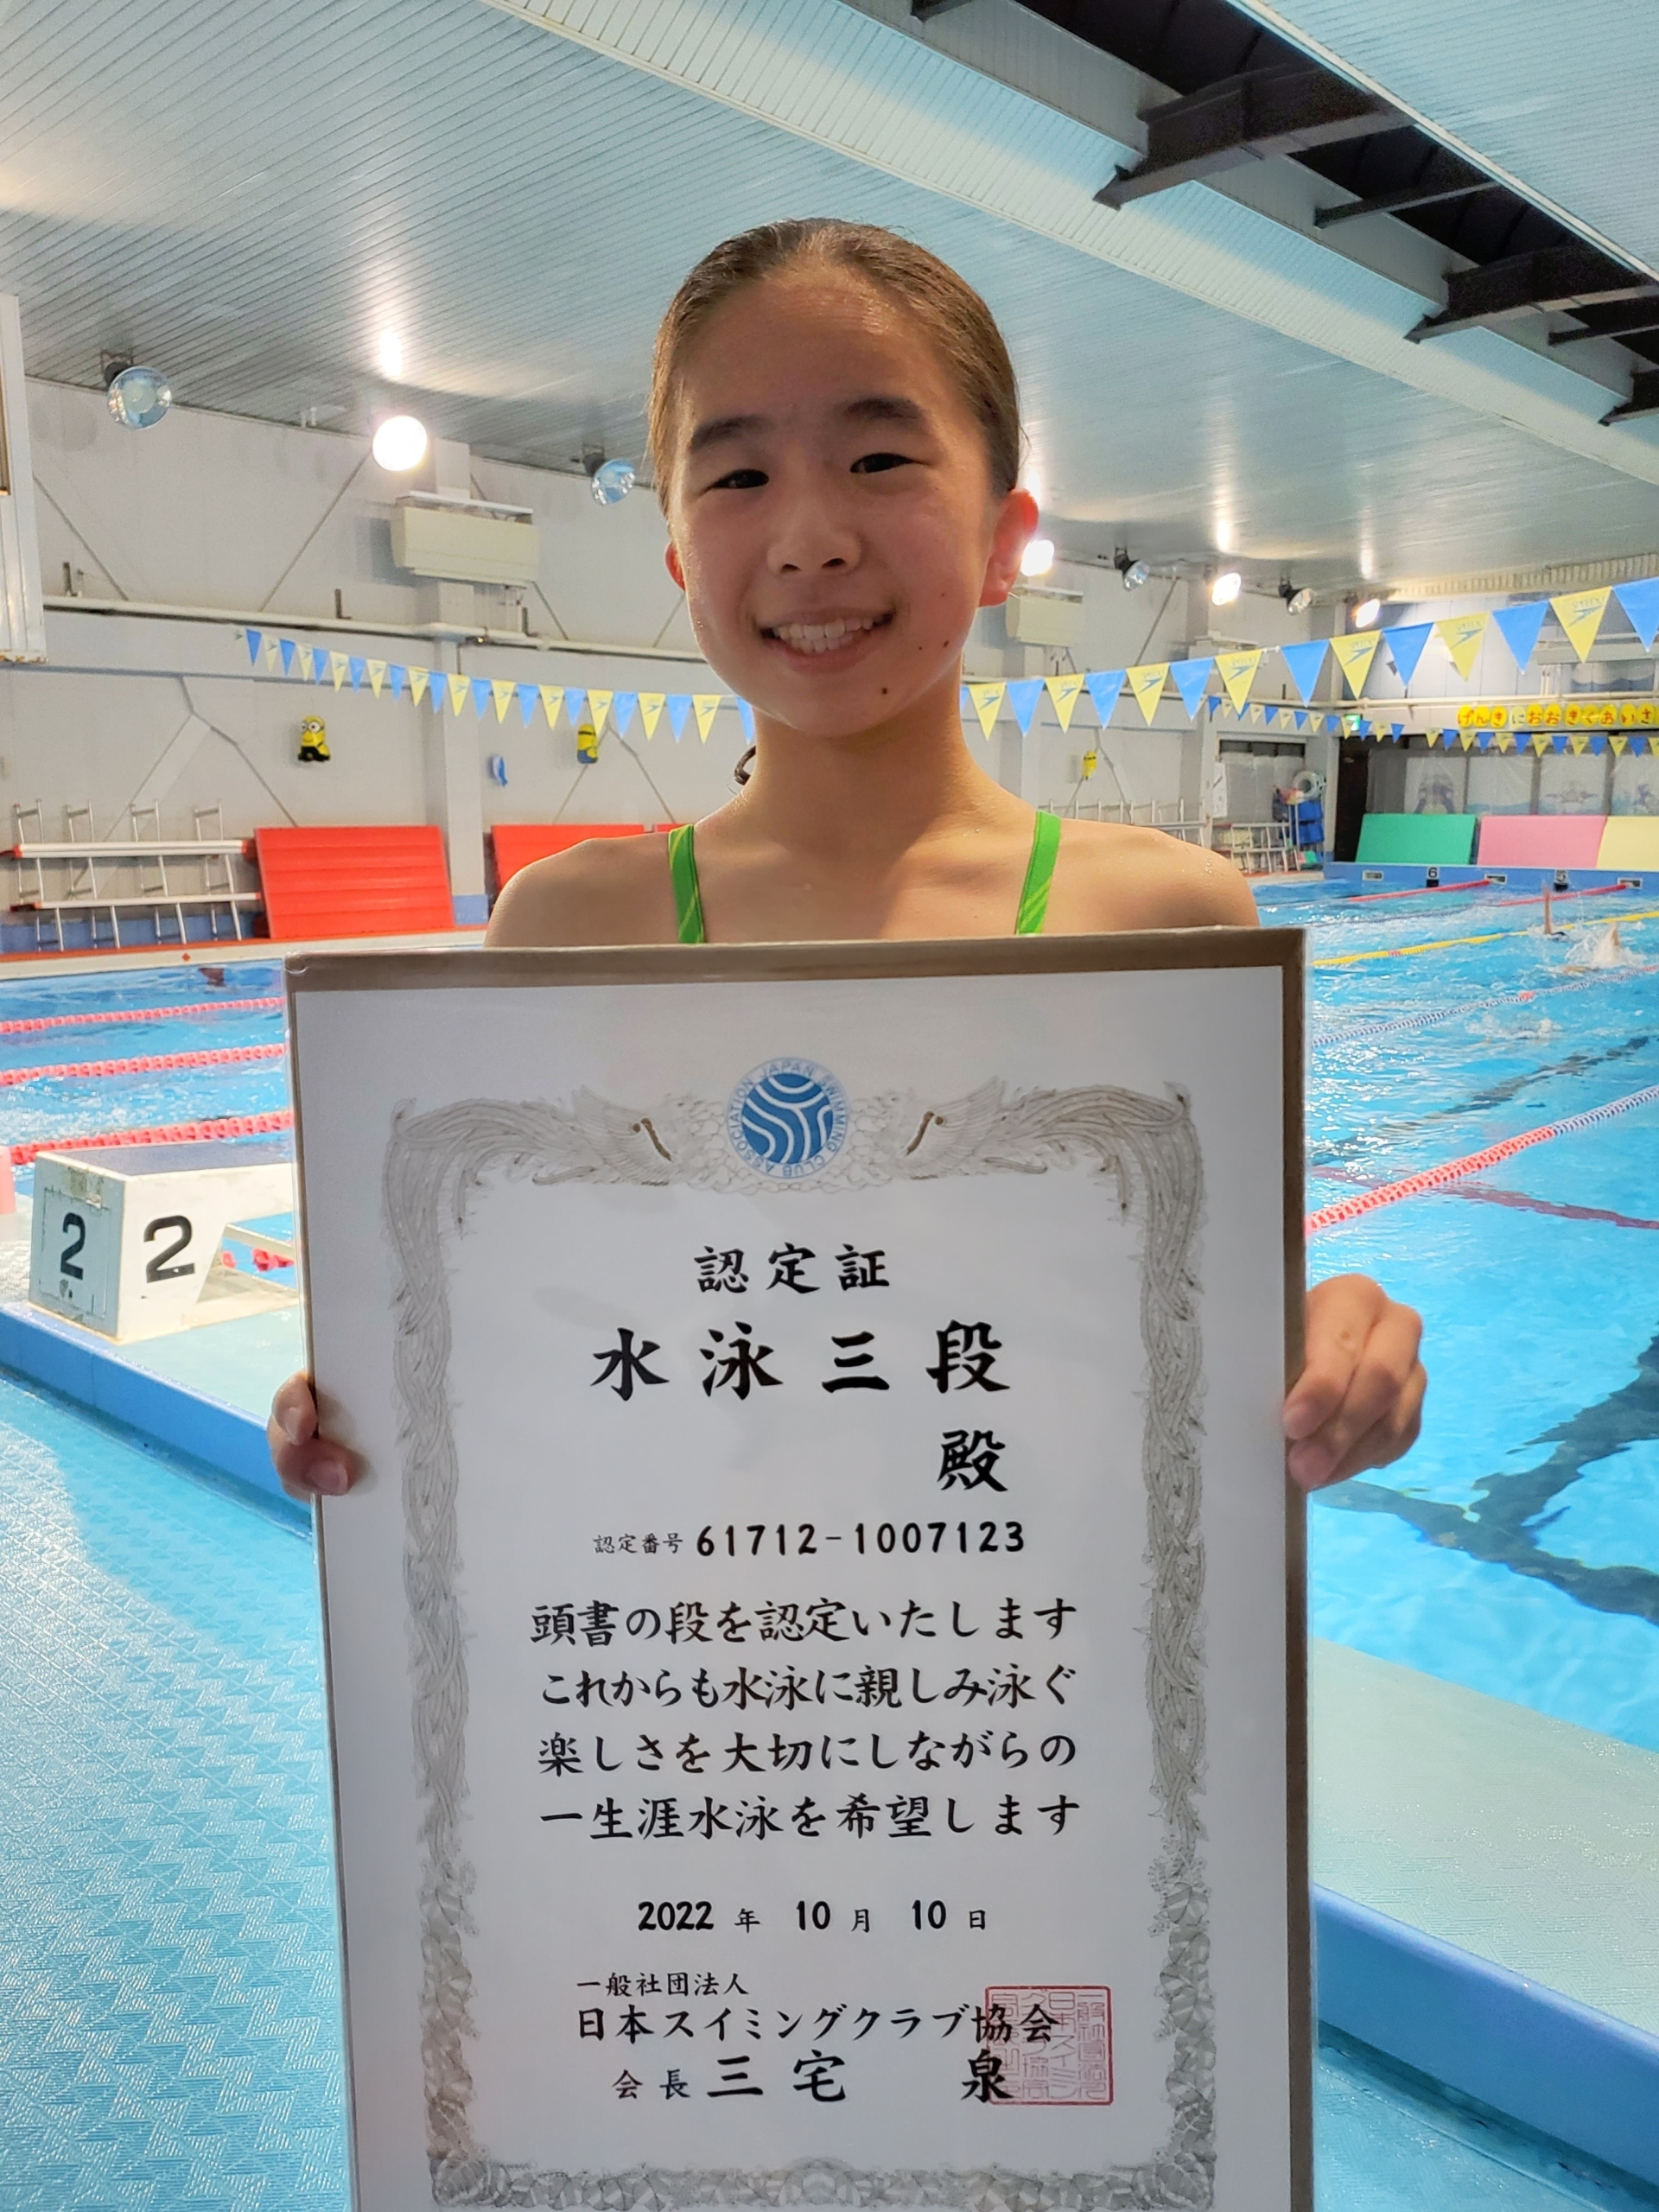 げんきにおおきくあいさ
6
5
2
2
JAPAN SWIMMING CLUB ASSOCIATION
認定証
水泳三段
殿
認定番号 61712-1007123
頭書の段を認定いたします
これからも水泳に親しみ泳ぐ
楽しさを大切にしながらの
一生涯水泳を希望します
2022 年 10 月 10 日
一般社団法人
日本スイミングクラブ協会
会長 三宅 泉